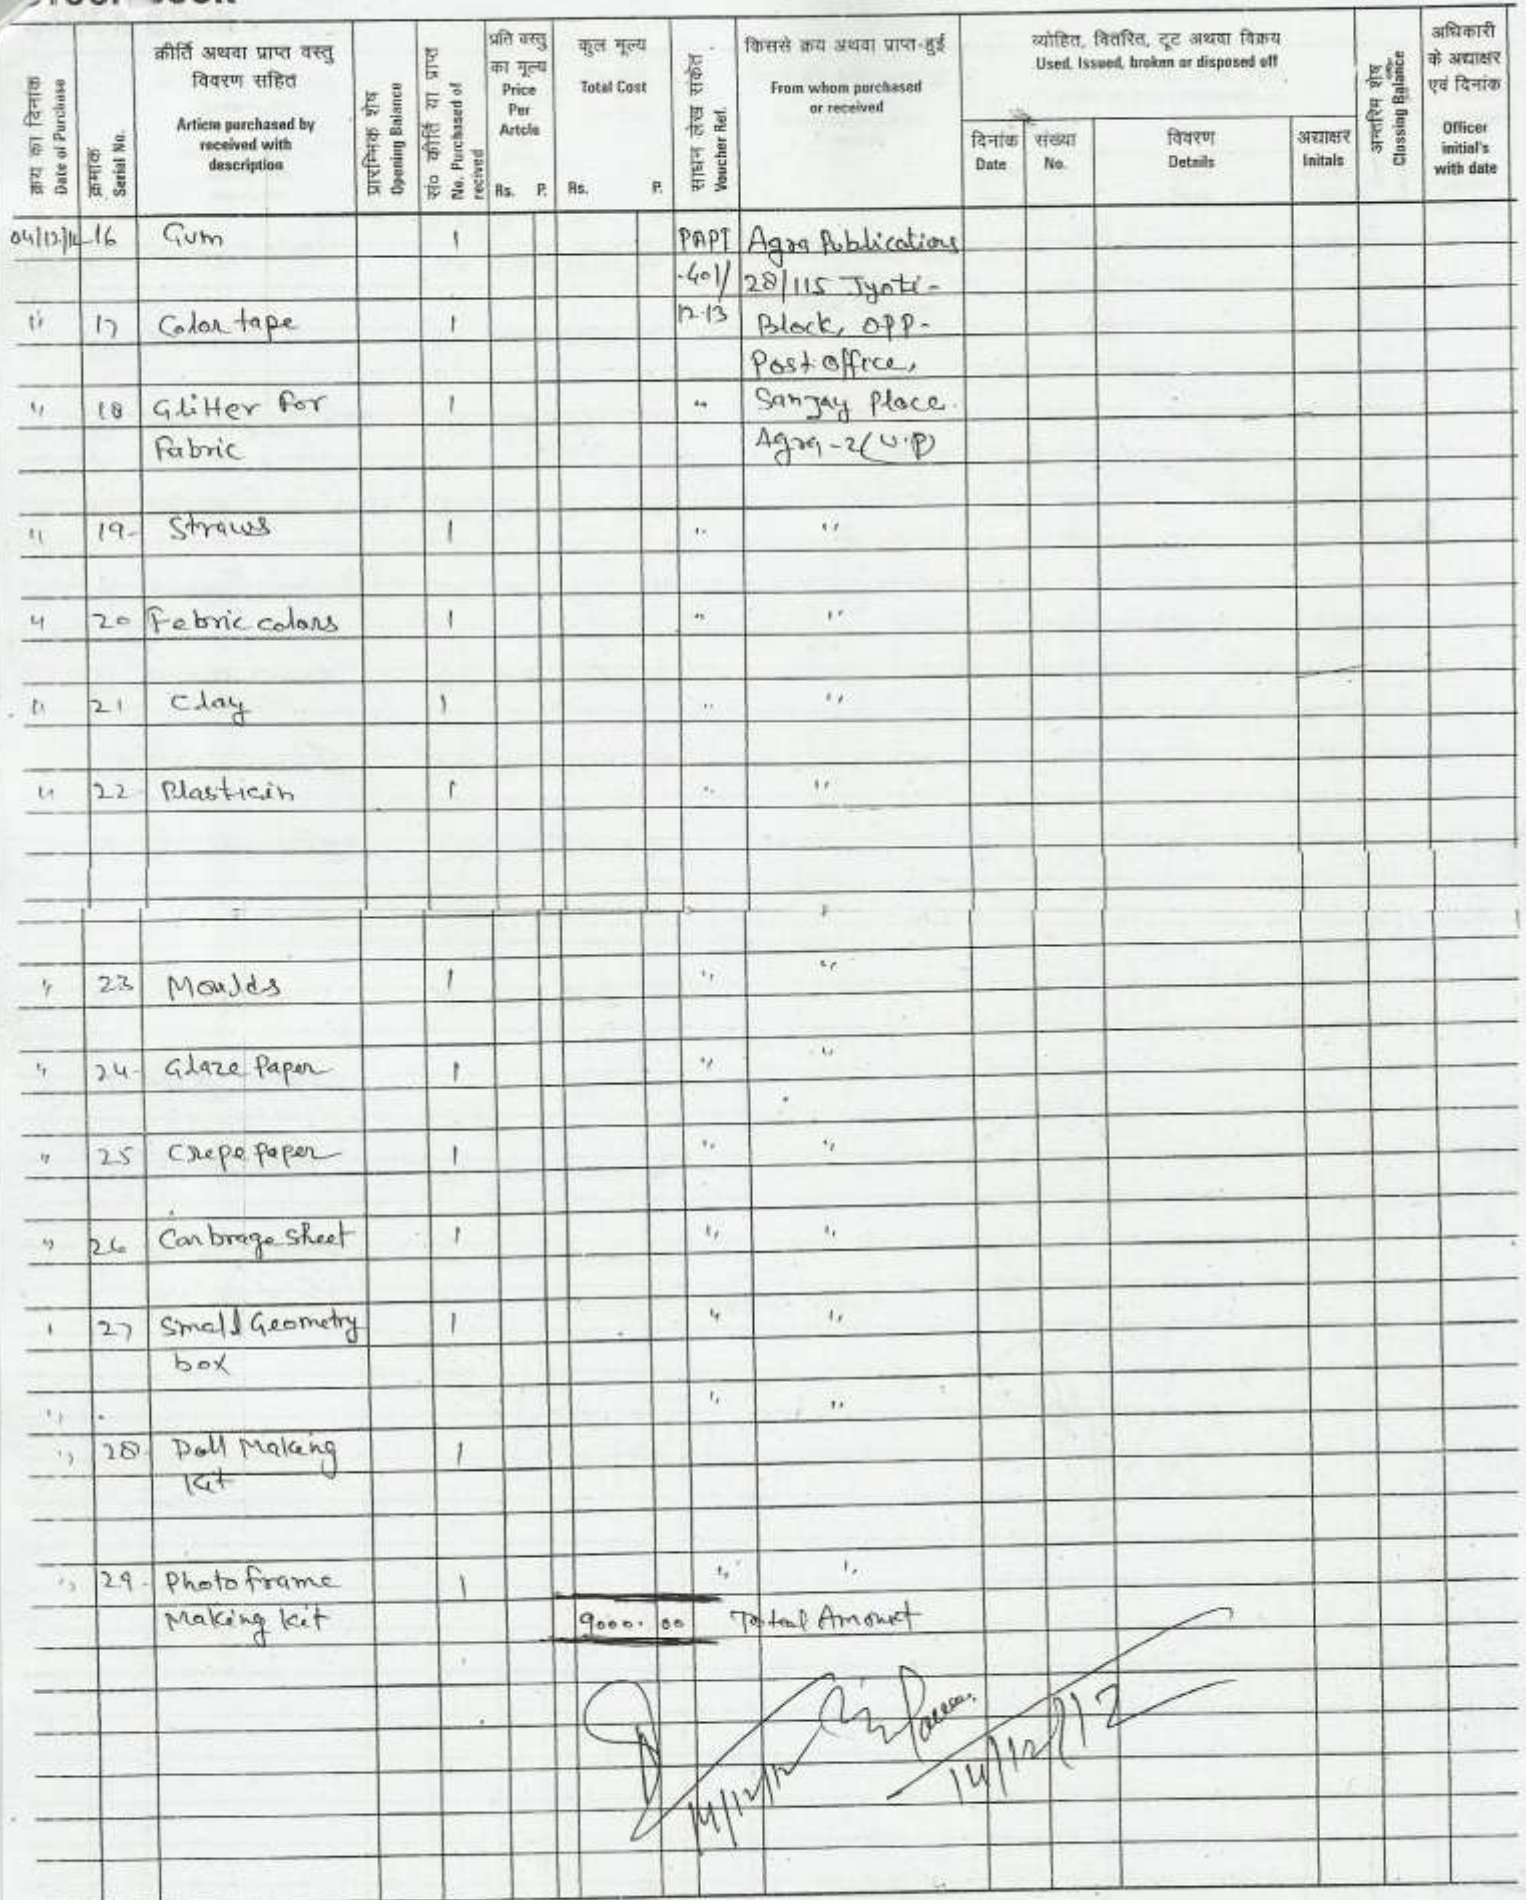 क्रय का दिनांक
Date of Purchase
क्रमांक
Serial No.
क्रीर्ति अथवा प्राप्त वस्तु
विवरण सहित
Article purchased by
received with
description
प्रारम्भिक शेष
Opening Balance
सं० क्रीर्ति या प्राप्त
No. Purchased of
recived
प्रति वस्तु
का मूल्य
Price
Per
Artcle
Rs. P.
कुल मूल्य
Total Cost
Rs. P.
साधन लेख संकेत
Voucher Ref.
किससे क्रय अथवा प्राप्त हुई
From whom purchased
or received
व्योहित, वितरित, टूट अथवा विक्रय
Used, Issued, broken or disposed off
दिनांक
Date
संख्या
No.
विवरण
Details
अद्याक्षर
Initals
अन्तरिम शेष
Clossing Balance
अधिकारी
के अद्याक्षर
एवं दिनांक
Officer
initial's
with date
04/12/12 16 Gum 1 PAPI Agra Publications
401/ 28/115 Jyoti-
" 17 Color tape 1 12-13 Block, OPP-
Post office,
" 18 Glitter For 1 " Sanjay Place.
Fabric Agra-2(U.P)
" 19- Straws 1 " "
" 20 Febric colors 1 " "
" 21 Clay 1 " "
" 22 Plasticin 1 " "
" 23 Moulds 1 " "
" 24- Glaze Paper 1 " "
" 25 Crepe paper 1 " "
" 26 Carbrage Sheet 1 " "
" 27 Small Geometry 1 " "
box
" " "
" 28- Doll Making 1
Kit
" 29- Photo frame 1 " "
Making kit 9000.00 Total Amount
14/12/12
14/12/12